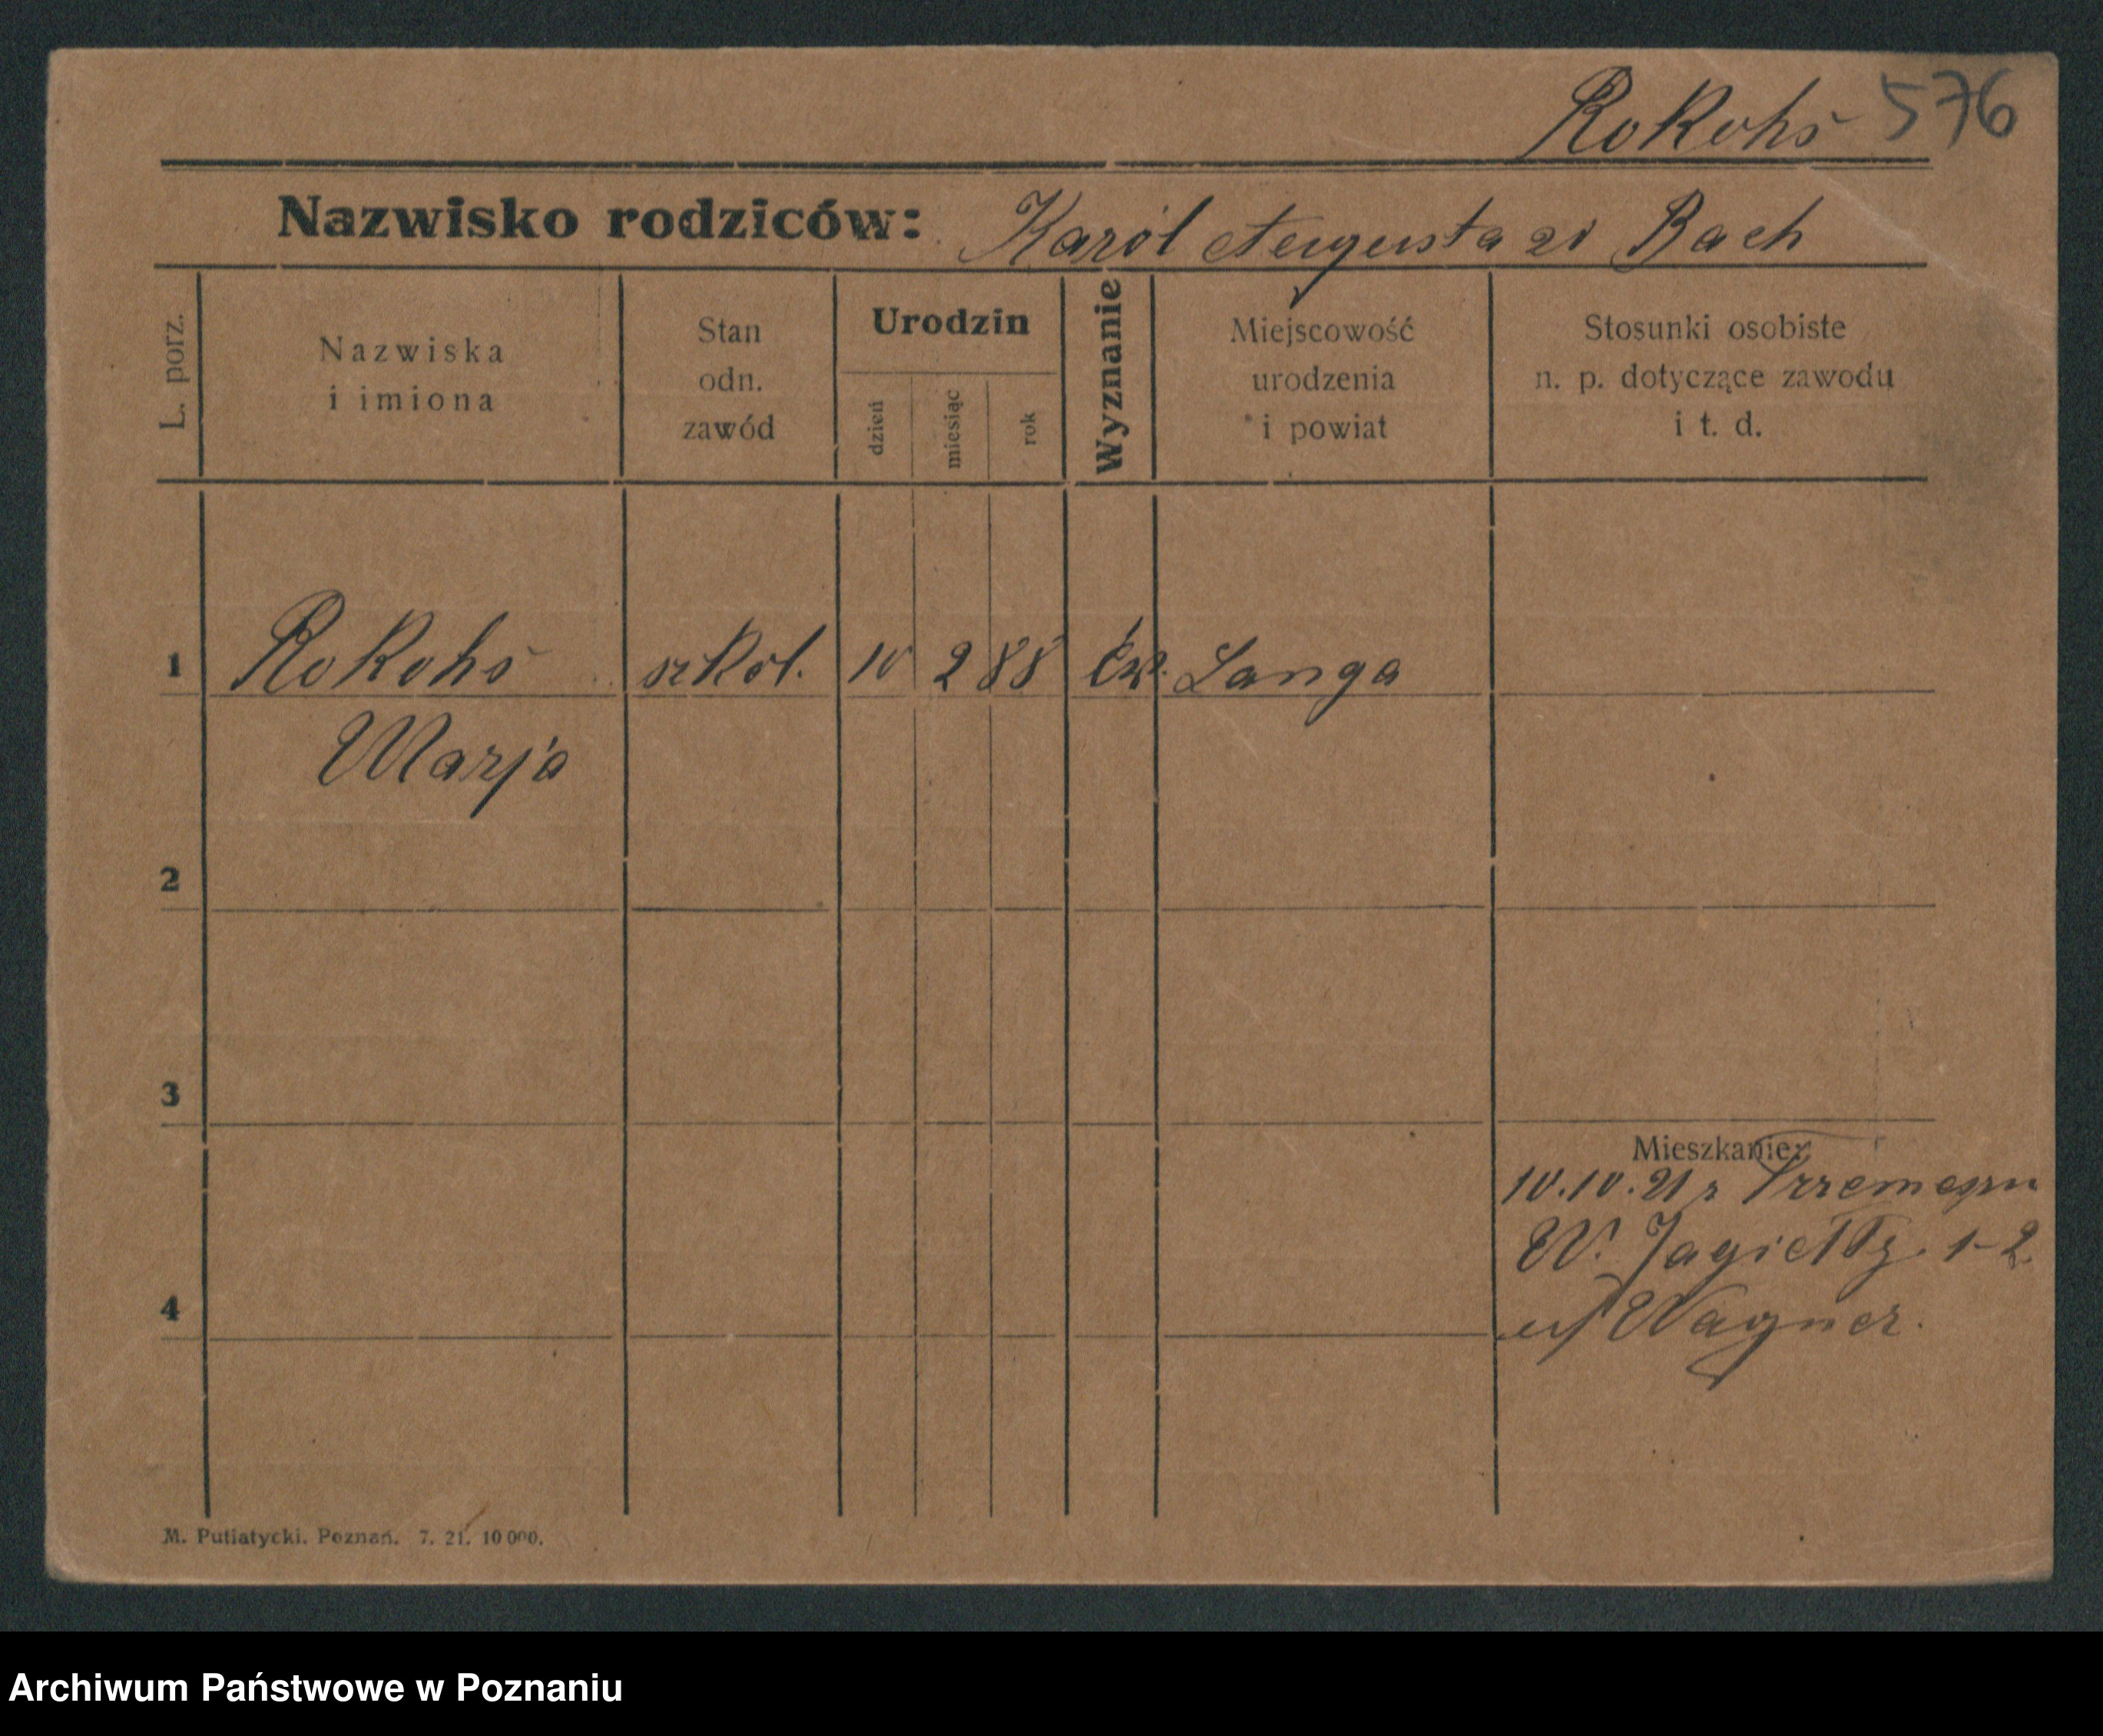 Rokohs 576
Nazwisko rodziców: Karól Augusta zd Bach
L. porz.
Nazwiska
i imiona
Stan
odn.
zawód
Urodzin
dzień
miesiąc
rok
Wyznanie
Miejscowość
urodzenia
i powiat
Stosunki osobiste
n. p. dotyczące zawodu
i t. d.
1 Rokohs 10 2 88 Ew. Langa
Marja
2
3
Mieszkanie:
10.10.21 z
W. Jagiełły. 1-2
4
Wagner.
M. Putiatycki. Poznań. 7. 21. 10 000.
Archiwum Państwowe w Poznaniu